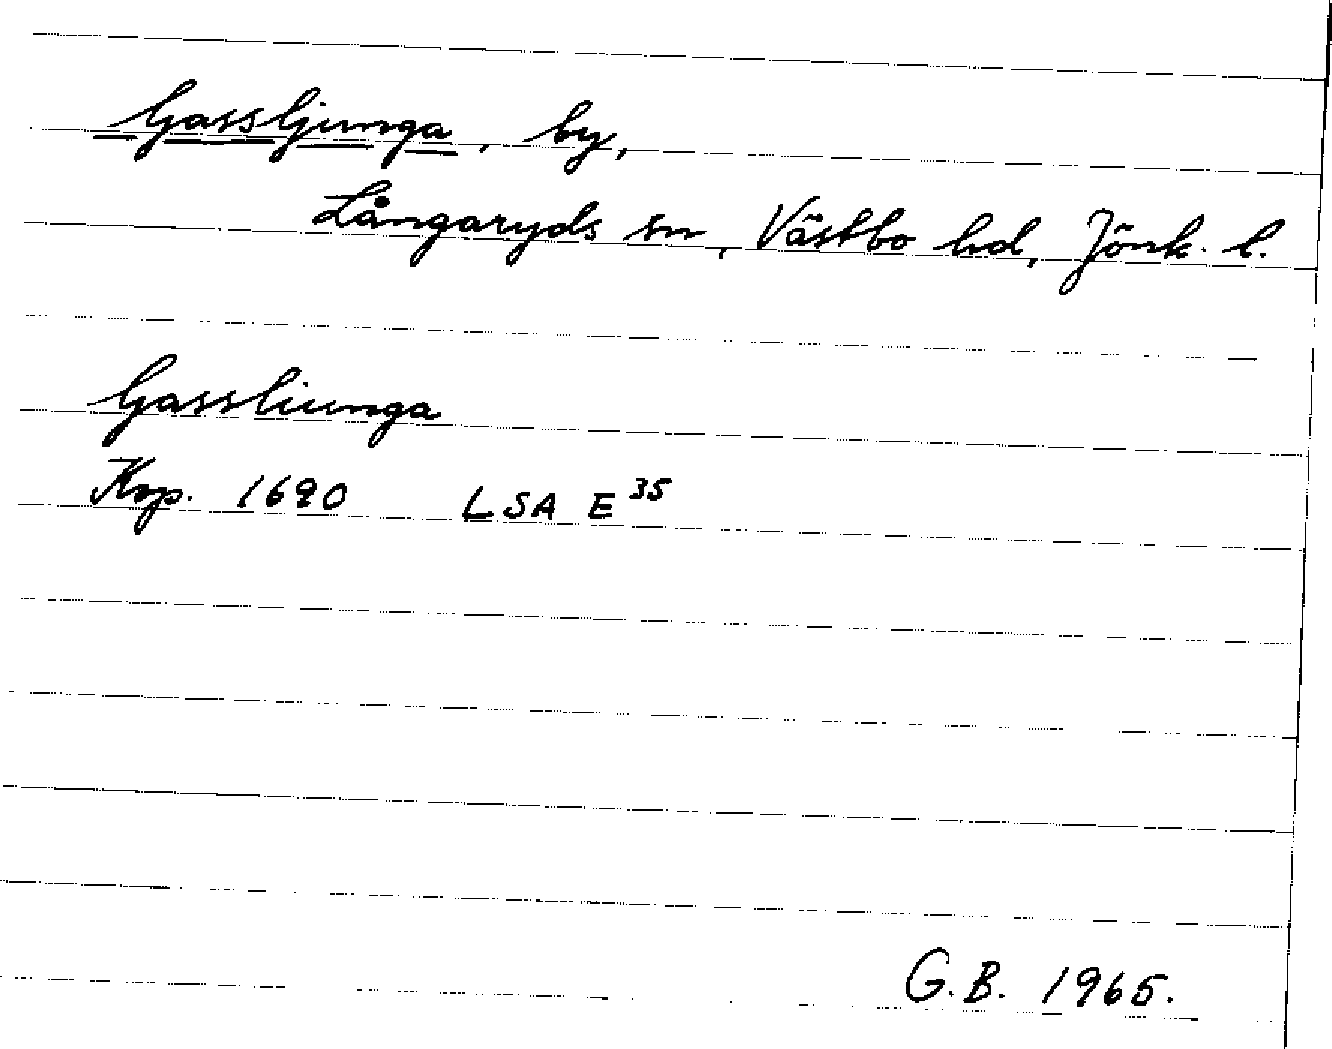 Gassljunga, by,
Långaryds sn, Västbo hd, Jönk. l.
Gassliunga
Kop. 1690 LSA E 35
G.B. 1965.